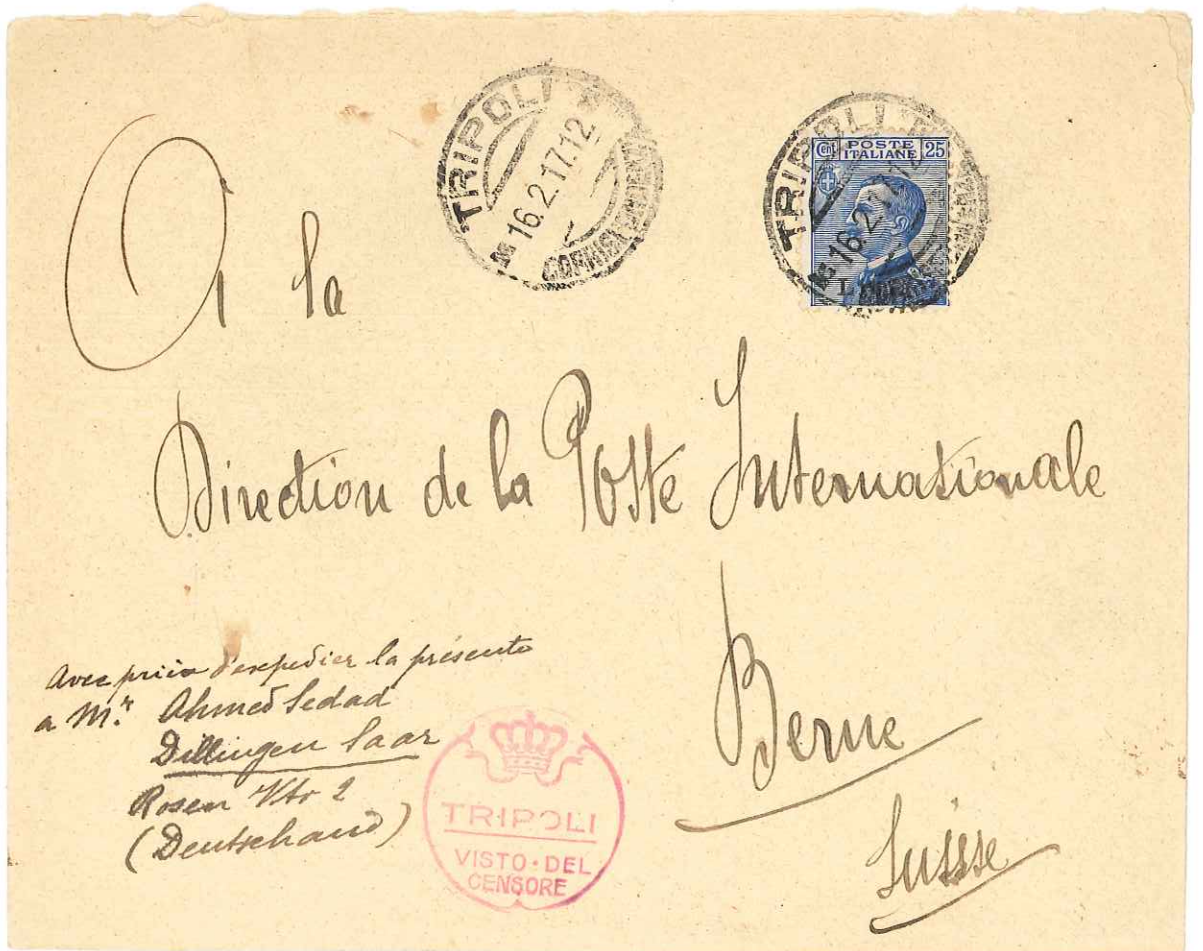 TRIPOLI
16.2.17.12
TRIPOLI
16.2.17.12
Cent POSTE ITALIANE 25
A la
Direction de la Poste Internationale
Berne
Suisse
Avec prière d'expedier la présente
a Mr. Ahmed Sedad
Dillingen Saar
Rosen Str 2
(Deutschand)
TRIPOLI
VISTO·DEL
CENSORE